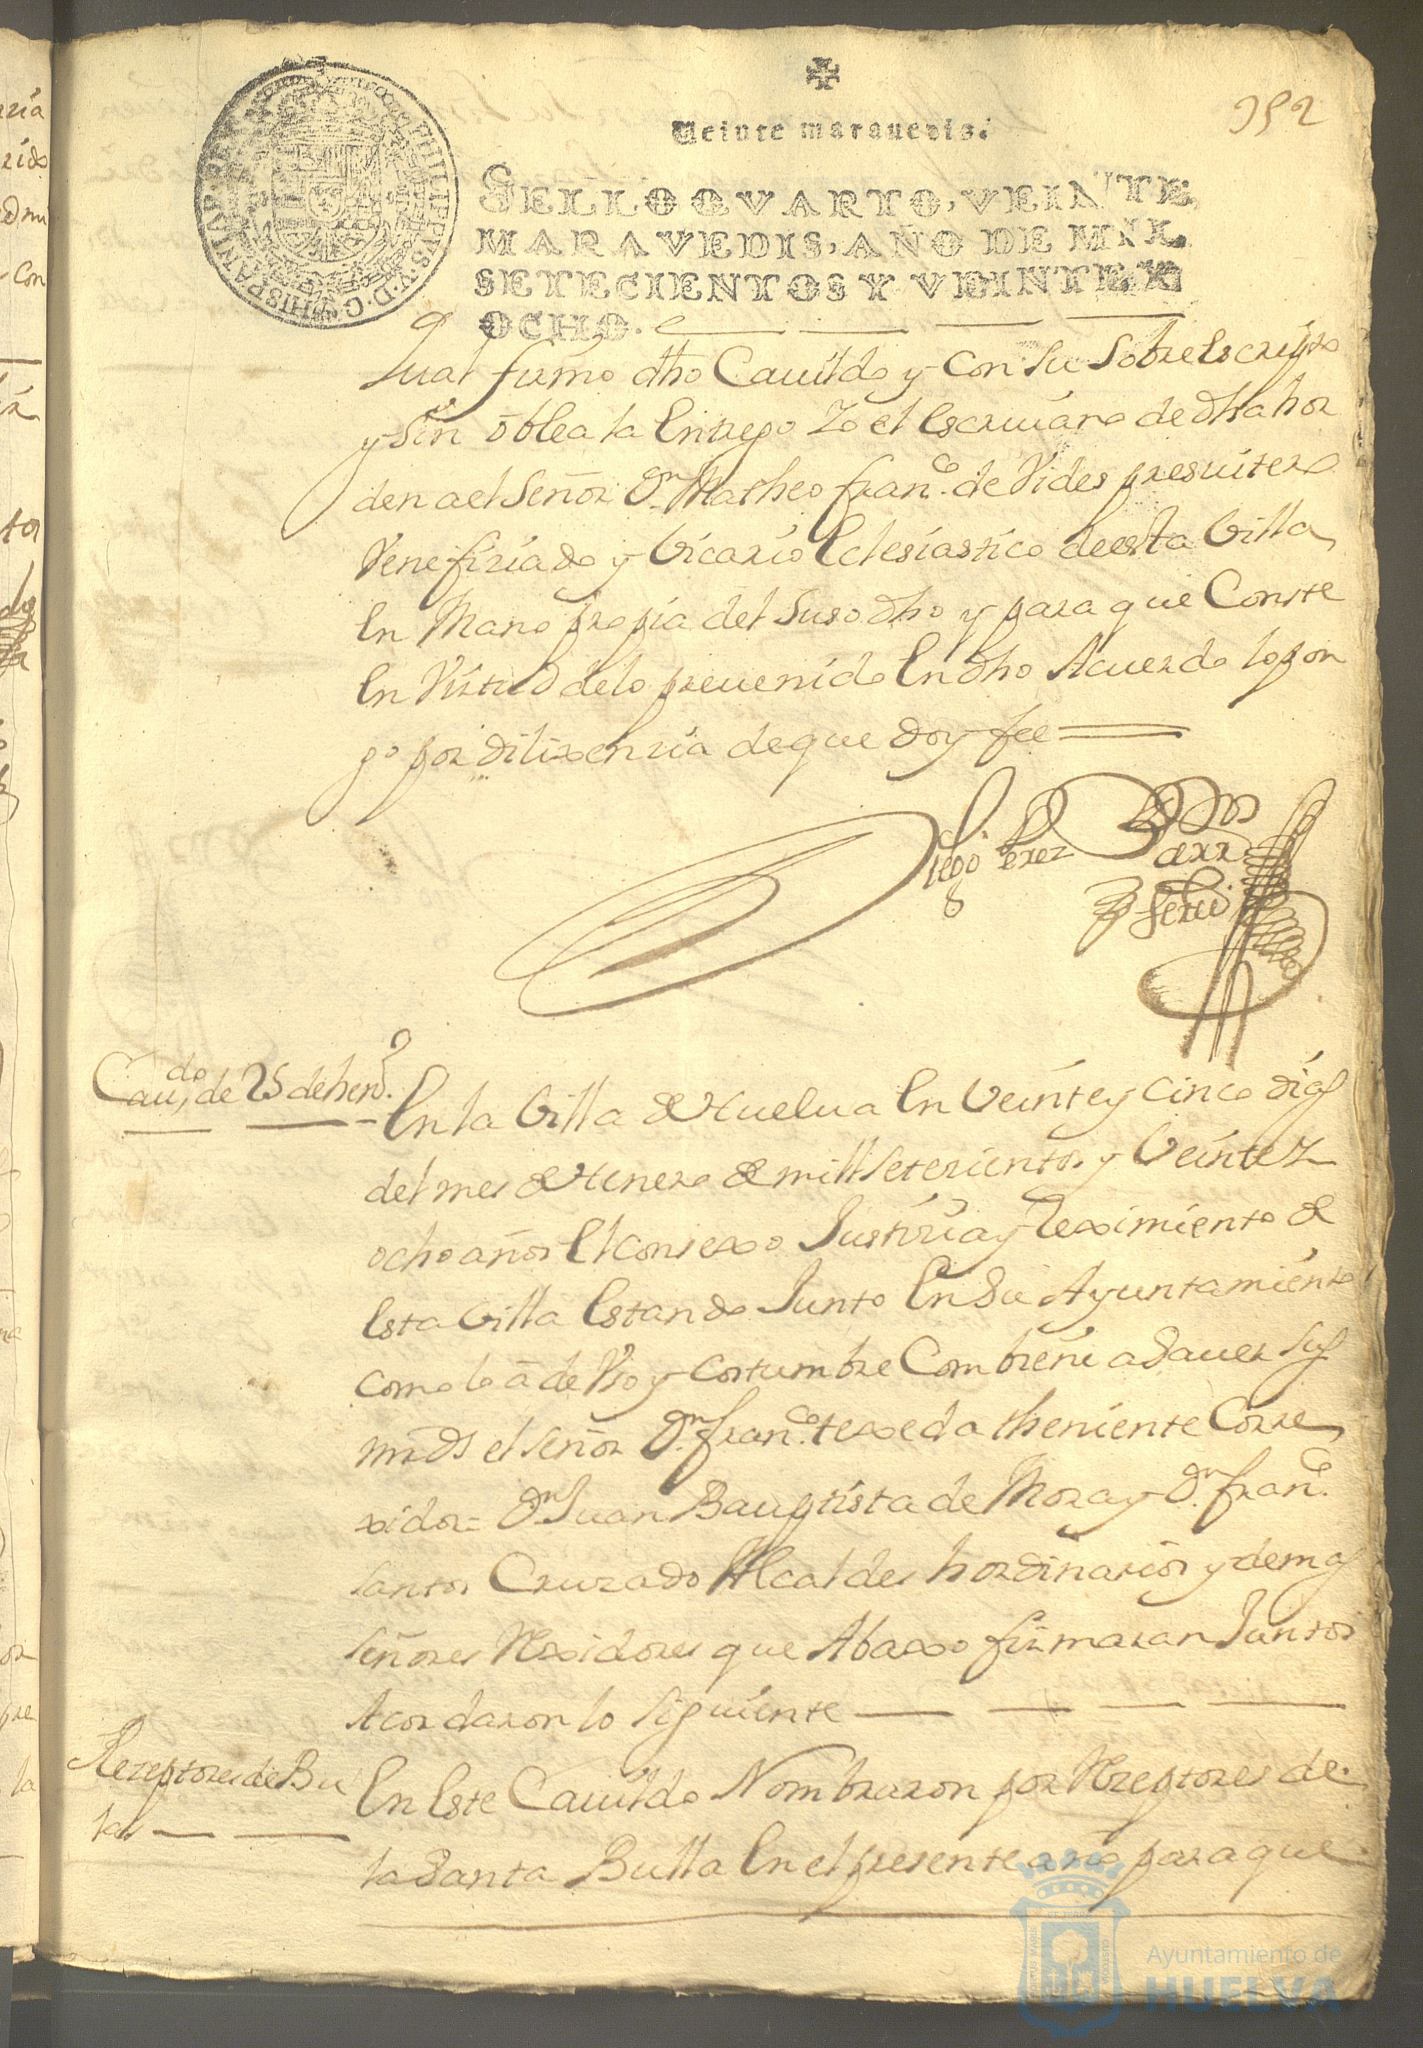 952
Veinte maravedis.
SELLO QVARTO, VEINTE
MARAVEDIS, AÑO DE MIL
SETECIENTOS Y VEINTE Y
OCHO.
PHILIPPVS V D G HISPANIAR REX
qual firmo dho Cauildo y con su sobre escripto
y sin oblea la entrego Yo el escriuano de dha hor
den a el señor Dn Matheo Franco de Vides presuitero
Venefiziado y Vicario Eclesiastico de esta Villa
en Mano propia del suso dho y para que Conste
en Virtud de lo preuenido en dho Acuerdo lo pon
go por dilixenzia de que doy fee
Diego Perez
Caudo de 25 de henro.
En la Villa de Huelua en Veinte y cinco dias
del mes de Henero de mill setezientos y Veinte y
ocho años el consexo Justizia y Reximiento de
esta Villa estando Junto en su Ayuntamiento
como lo a de Vso y costumbre Combiene a Sauer sus
mrds el señor Dn Franco texeda theniente Corre
xidor = Dn Juan Bauptista de Mora y Dn Franco
santos Cruzado Alcaldes hordinarios y demas
señores Rexidores que Abaxo firmaran Juntos
Acordaron lo siguiente
Rezeptores de Bu
las
En este Cauildo Nombraron por Rzeptores de
la Santa Bulla en el presente año para que
Ayuntamiento de
HUELVA